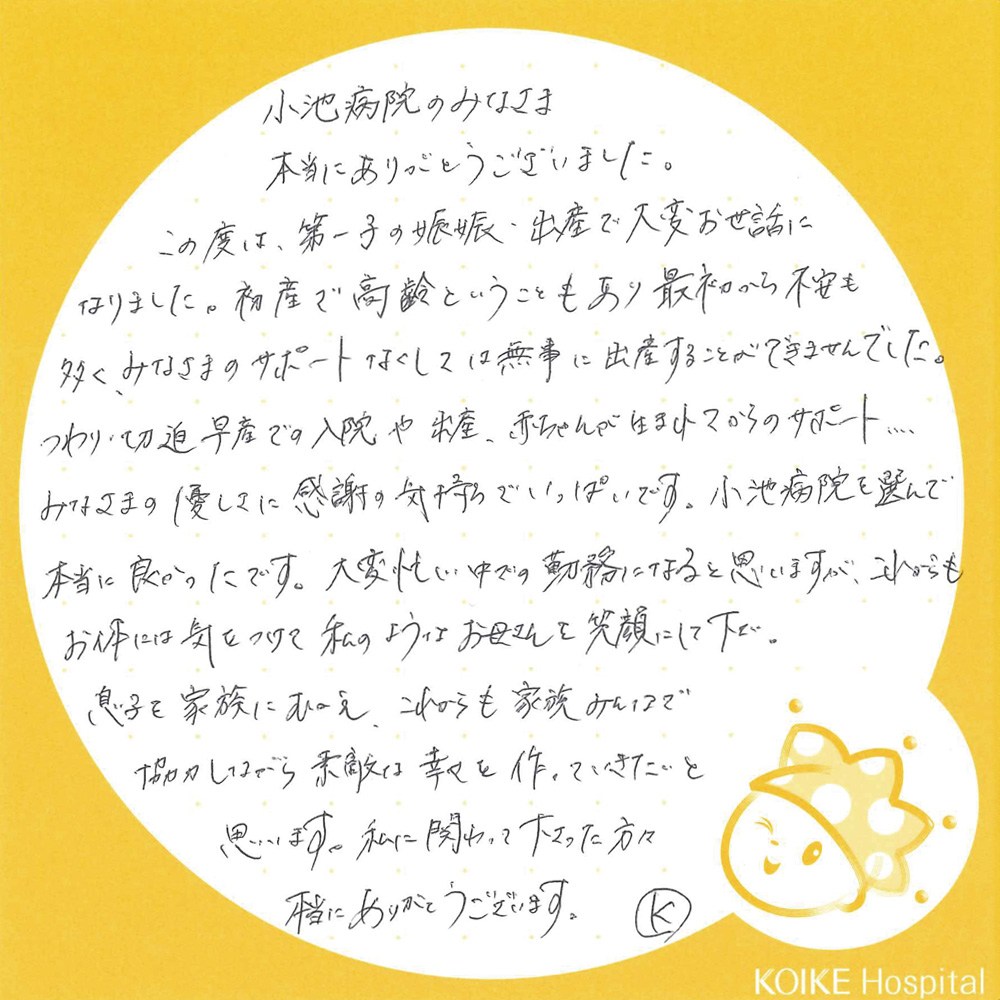 小池病院のみなさま
本当にありがとうございました。
この度は、第一子の妊娠・出産で大変お世話に
なりました。初産で高齢ということもあり最初から不安も
多く、みなさまのサポートなくしては無事に出産することができませんでした。
つわり・切迫早産での入院や出産、赤ちゃんが生まれてからのサポート....
みなさまの優しさに感謝の気持ちでいっぱいです。小池病院を選んで
本当に良かったです。大変忙しい中での勤務になると思いますが、これからも
お体には気をつけて私のようなお母さんを笑顔にして下さい。
息子を家族にむかえ、これからも家族みんなで
協力しながら素敵な家族を作っていきたいと
思います。私に関わって下さった方々
本当にありがとうございます。 K
KOIKE Hospital